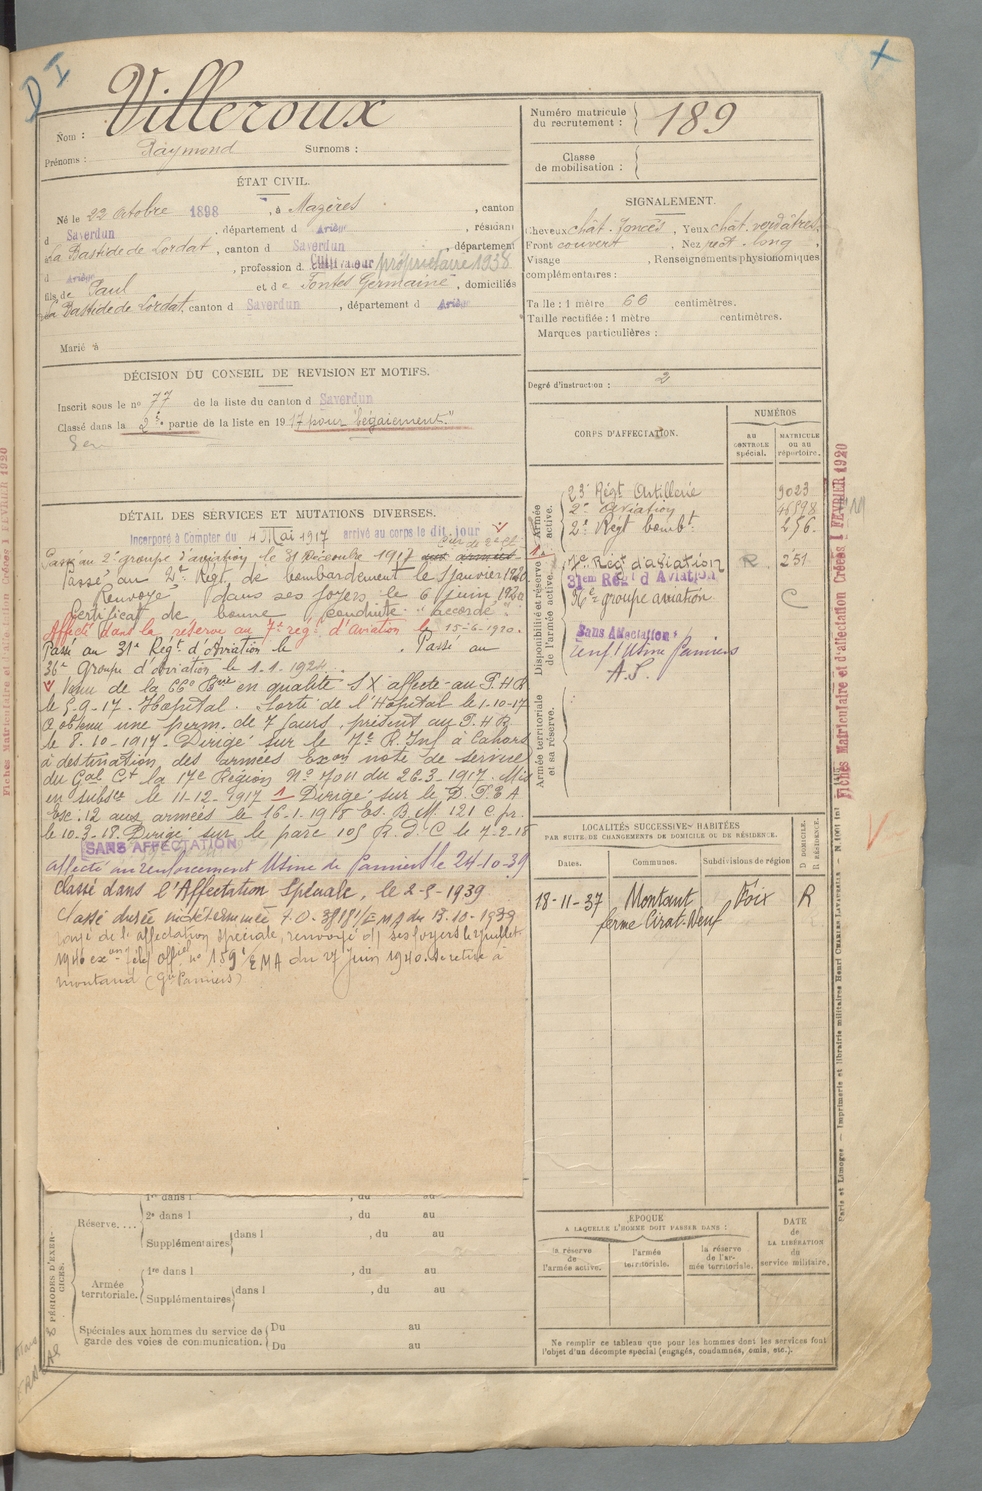 D I
Villeroux
Nom :
Prénoms : Raymond Surnoms :
ÉTAT CIVIL.
Né le 22 Octobre 1898, à Mazères, canton
d Saverdun, département d Ariège, résidant
à La Bastide de Lordat, canton d Saverdun, département
d Ariège, profession d Cultivateur propriétaire 1938
fils de Paul et de Fontès Germaine, domiciliés
à La Bastide de Lordat, canton d Saverdun, département d Ariège
Marié à
DÉCISION DU CONSEIL DE REVISION ET MOTIFS.
Inscrit sous le no 77 de la liste du canton d Saverdun
Classé dans la 2e partie de la liste en 1917 pour "bégaiement"
DÉTAIL DES SERVICES ET MUTATIONS DIVERSES.
Incorporé à Compter du 4 Mai 1917 arrivé au corps le dit jour
Passé au 2e groupe d'aviation le 31 Décembre 1917 aux armées
Passé au 2e Régt de bombardement le 1 Janvier 1920
Renvoyé dans ses foyers le 6 juin 1920
Certificat de bonne conduite "accordé"
Affecté dans la réserve au 7e régt d'Aviation le 15-6-1920.
Passé au 31e Régt d'Aviation le . Passé au
36e Groupe d'Aviation le 1.1.1924
Venu de la 66e Bie en qualité SX affecté au P.H.R
le 5-9-17. Hopital. Sorti de l'Hopital le 1-10-17
a obtenu une perm. de 7 jours, présent au P.H.R
le 8.10-1917. Dirigé sur le 7e R. Inf à Cahors
à destination des armées Exon note de service
du Gal Ct la 17e Région No 7011 du 26.3-1917. Mis
en subsce le 11-12-1917 1 Dirigé sur le D.P.E.A
Esc. 12 aux armées le 16-1-1918 Es. B.M. 121 C pr.
le 10-3-18. Dirigé sur le parc 105 R.D.C le 7-2-18
SANS AFFECTATION
Affecté au renforcement Usine de Pamiers le 24-10-39
Classé dans l'Affectation Spéciale, le 2-9-1939
Classé durée indéterminée I.O. /EMA du 13-10-1939
rayé de l'affectation spéciale, renvoyé ds ses foyers le juillet
1940 exon télég offiel no 159 EMA du 27 juin 1940. Se retire à
montaud (Gde Pamiers)
PÉRIODES D'EXERCICES.
Réserve....
1re dans l , du au
2e dans l , du au
Supplémentaires dans l , du au
Armée territoriale.
1re dans l , du au
Supplémentaires dans l , du au
Spéciales aux hommes du service de garde des voies de communication.
Du au
Du au
Numéro matricule du recrutement : 189
Classe de mobilisation :
SIGNALEMENT.
Cheveux chât. foncés, Yeux chât. verdâtres
Front couvert, Nez rect. long,
Visage , Renseignements physionomiques
complémentaires :
Taille : 1 mètre 60 centimètres.
Taille rectifiée : 1 mètre centimètres.
Marques particulières :
Degré d'instruction : 2
CORPS D'AFFECTATION.
NUMÉROS
AU CONTROLE spécial.
MATRICULE ou au répertoire.
Armée active.
23e Régt Artillerie 9023
2e Aviation 46598
2e Régt bombt 256
Disponibilité et réserve de l'armée active.
7e Régt d'aviation R 251
31em Régt d'Aviation
36e groupe aviation C
Sans Affectation
renft Usine Pamiers
A.S.
Armée territoriale et sa réserve.
LOCALITÉS SUCCESSIVES HABITÉES
PAR SUITE DE CHANGEMENTS DE DOMICILE OU DE RÉSIDENCE.
Dates.
Communes.
Subdivisions de région
D DOMICILE.
R RÉSIDENCE.
18-11-37 Montaut Foix R
ferme Cirat-Neuf
ÉPOQUE
A LAQUELLE L'HOMME DOIT PASSER DANS :
la réserve de l'armée active.
l'armée territoriale.
la réserve de l'armée territoriale.
DATE de LA LIBÉRATION du service militaire.
Ne remplir ce tableau que pour les hommes dont les services font
l'objet d'un décompte spécial (engagés, condamnés, omis, etc.).
Fiches Matriculaire et d'affectation Créées 1 FEVRIER 1920
Paris et Limoges. — Imprimerie et librairie militaires Henri CHARLES-LAVAUZELLE
Fiches Matriculaire et d'affectation Créées 1 FEVRIER 1920